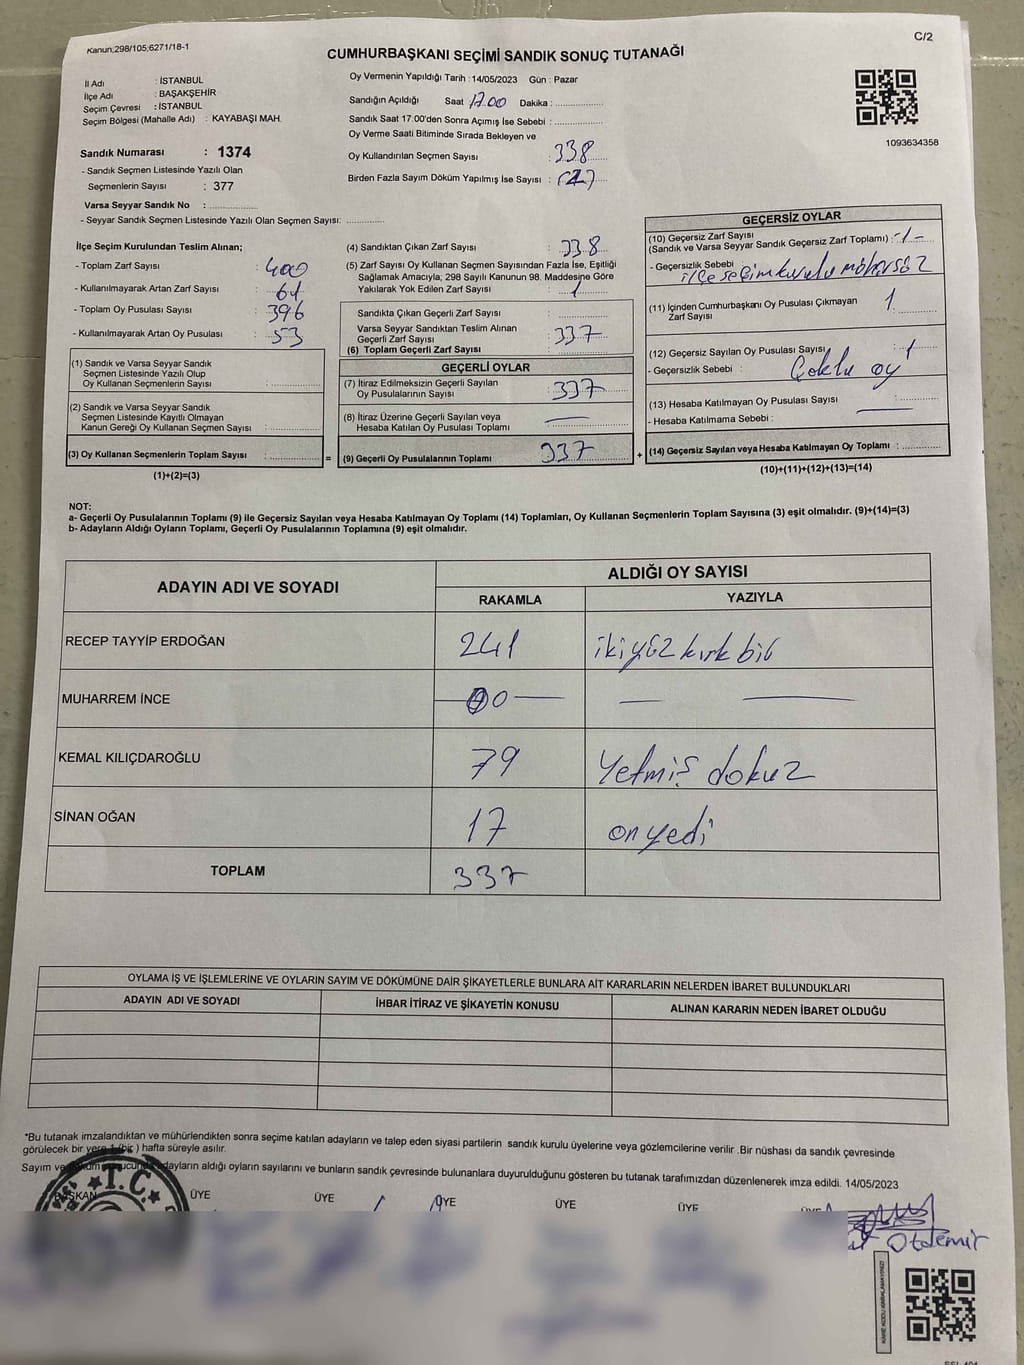 Kanun;298/105;6271/18-1
C/2
CUMHURBAŞKANI SEÇİMİ SANDIK SONUÇ TUTANAĞI
İl Adı : İSTANBUL
İlçe Adı : BAŞAKŞEHİR
Seçim Çevresi : İSTANBUL
Seçim Bölgesi (Mahalle Adı) : KAYABAŞI MAH.
Sandık Numarası : 1374
- Sandık Seçmen Listesinde Yazılı Olan
Seçmenlerin Sayısı : 377
Varsa Seyyar Sandık No :
- Seyyar Sandık Seçmen Listesinde Yazılı Olan Seçmen Sayısı:
Oy Vermenin Yapıldığı Tarih :14/05/2023 Gün : Pazar
Sandığın Açıldığı Saat 17.00 Dakika :
Sandık Saat 17.00'den Sonra Açımış İse Sebebi :
Oy Verme Saati Bitiminde Sırada Bekleyen ve
Oy Kullandırılan Seçmen Sayısı : 338
Birden Fazla Sayım Döküm Yapılmış İse Sayısı :
1093634358
İlçe Seçim Kurulundan Teslim Alınan;
- Toplam Zarf Sayısı : 400
- Kullanılmayarak Artan Zarf Sayısı : 61
- Toplam Oy Pusulası Sayısı : 396
- Kullanılmayarak Artan Oy Pusulası : 53
(1) Sandık ve Varsa Seyyar Sandık
Seçmen Listesinde Yazılı Olup
Oy Kullanan Seçmenlerin Sayısı :
(2) Sandık ve Varsa Seyyar Sandık
Seçmen Listesinde Kayıtlı Olmayan
Kanun Gereği Oy Kullanan Seçmen Sayısı :
(3) Oy Kullanan Seçmenlerin Toplam Sayısı :
(1)+(2)=(3)
=
(4) Sandıktan Çıkan Zarf Sayısı : 338
(5) Zarf Sayısı Oy Kullanan Seçmen Sayısından Fazla İse, Eşitliği
Sağlamak Amacıyla, 298 Sayılı Kanunun 98. Maddesine Göre
Yakılarak Yok Edilen Zarf Sayısı :
Sandıkta Çıkan Geçerli Zarf Sayısı :
Varsa Seyyar Sandıktan Teslim Alınan
Geçerli Zarf Sayısı : 337
(6) Toplam Geçerli Zarf Sayısı :
GEÇERLİ OYLAR
(7) İtiraz Edilmeksizin Geçerli Sayılan
Oy Pusulalarının Sayısı : 337
(8) İtiraz Üzerine Geçerli Sayılan veya
Hesaba Katılan Oy Pusulası Toplamı :
(9) Geçerli Oy Pusulalarının Toplamı : 337
+
GEÇERSİZ OYLAR
(10) Geçersiz Zarf Sayısı
(Sandık ve Varsa Seyyar Sandık Geçersiz Zarf Toplamı) : -1-
- Geçersizlik Sebebi : ilçe seçim kurulu mühürsüz
(11) İçinden Cumhurbaşkanı Oy Pusulası Çıkmayan
Zarf Sayısı : 1
(12) Geçersiz Sayılan Oy Pusulası Sayısı : 1
- Geçersizlik Sebebi : Çoklu oy
(13) Hesaba Katılmayan Oy Pusulası Sayısı :
- Hesaba Katılmama Sebebi :
(14) Geçersiz Sayılan veya Hesaba Katılmayan Oy Toplamı :
(10)+(11)+(12)+(13)=(14)
NOT:
a- Geçerli Oy Pusulalarının Toplamı (9) ile Geçersiz Sayılan veya Hesaba Katılmayan Oy Toplamı (14) Toplamları, Oy Kullanan Seçmenlerin Toplam Sayısına (3) eşit olmalıdır. (9)+(14)=(3)
b- Adayların Aldığı Oyların Toplamı, Geçerli Oy Pusulalarının Toplamına (9) eşit olmalıdır.
ADAYIN ADI VE SOYADI
ALDIĞI OY SAYISI
RAKAMLA YAZIYLA
RECEP TAYYİP ERDOĞAN 241 ikiyüz kırk bir
MUHARREM İNCE 0 —
KEMAL KILIÇDAROĞLU 79 Yetmiş dokuz
SİNAN OĞAN 17 onyedi
TOPLAM 337
OYLAMA İŞ VE İŞLEMLERİNE VE OYLARIN SAYIM VE DÖKÜMÜNE DAİR ŞİKAYETLERLE BUNLARA AİT KARARLARIN NELERDEN İBARET BULUNDUKLARI
ADAYIN ADI VE SOYADI İHBAR İTİRAZ VE ŞİKAYETİN KONUSU ALINAN KARARIN NEDEN İBARET OLDUĞU
*Bu tutanak imzalandıktan ve mühürlendikten sonra seçime katılan adayların ve talep eden siyasi partilerin sandık kurulu üyelerine veya gözlemcilerine verilir .Bir nüshası da sandık çevresinde
görülecek bir yere 1 (bir ) hafta süreyle asılır.
Sayım ve adayların aldığı oyların sayılarını ve bunların sandık çevresinde bulunanlara duyurulduğunu gösteren bu tutanak tarafımızdan düzenlenerek imza edildi. 14/05/2023
BAŞKAN ÜYE ÜYE ÜYE ÜYE ÜYE
T.C.